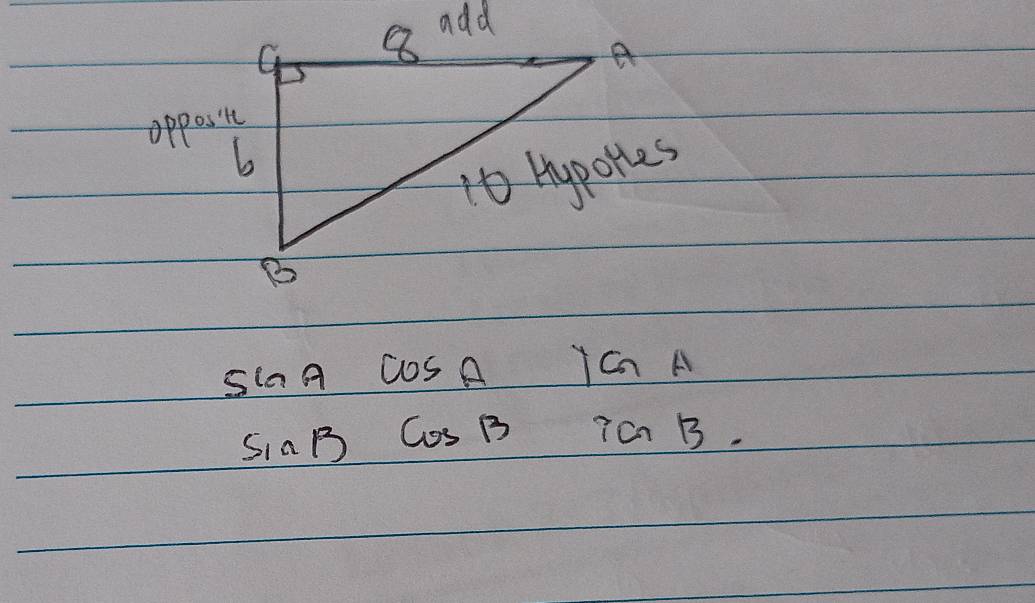 8 add
C A
opposite
6
10 Hypotes
B
sin A cos A Tan A
sin B Cos B Tan B.